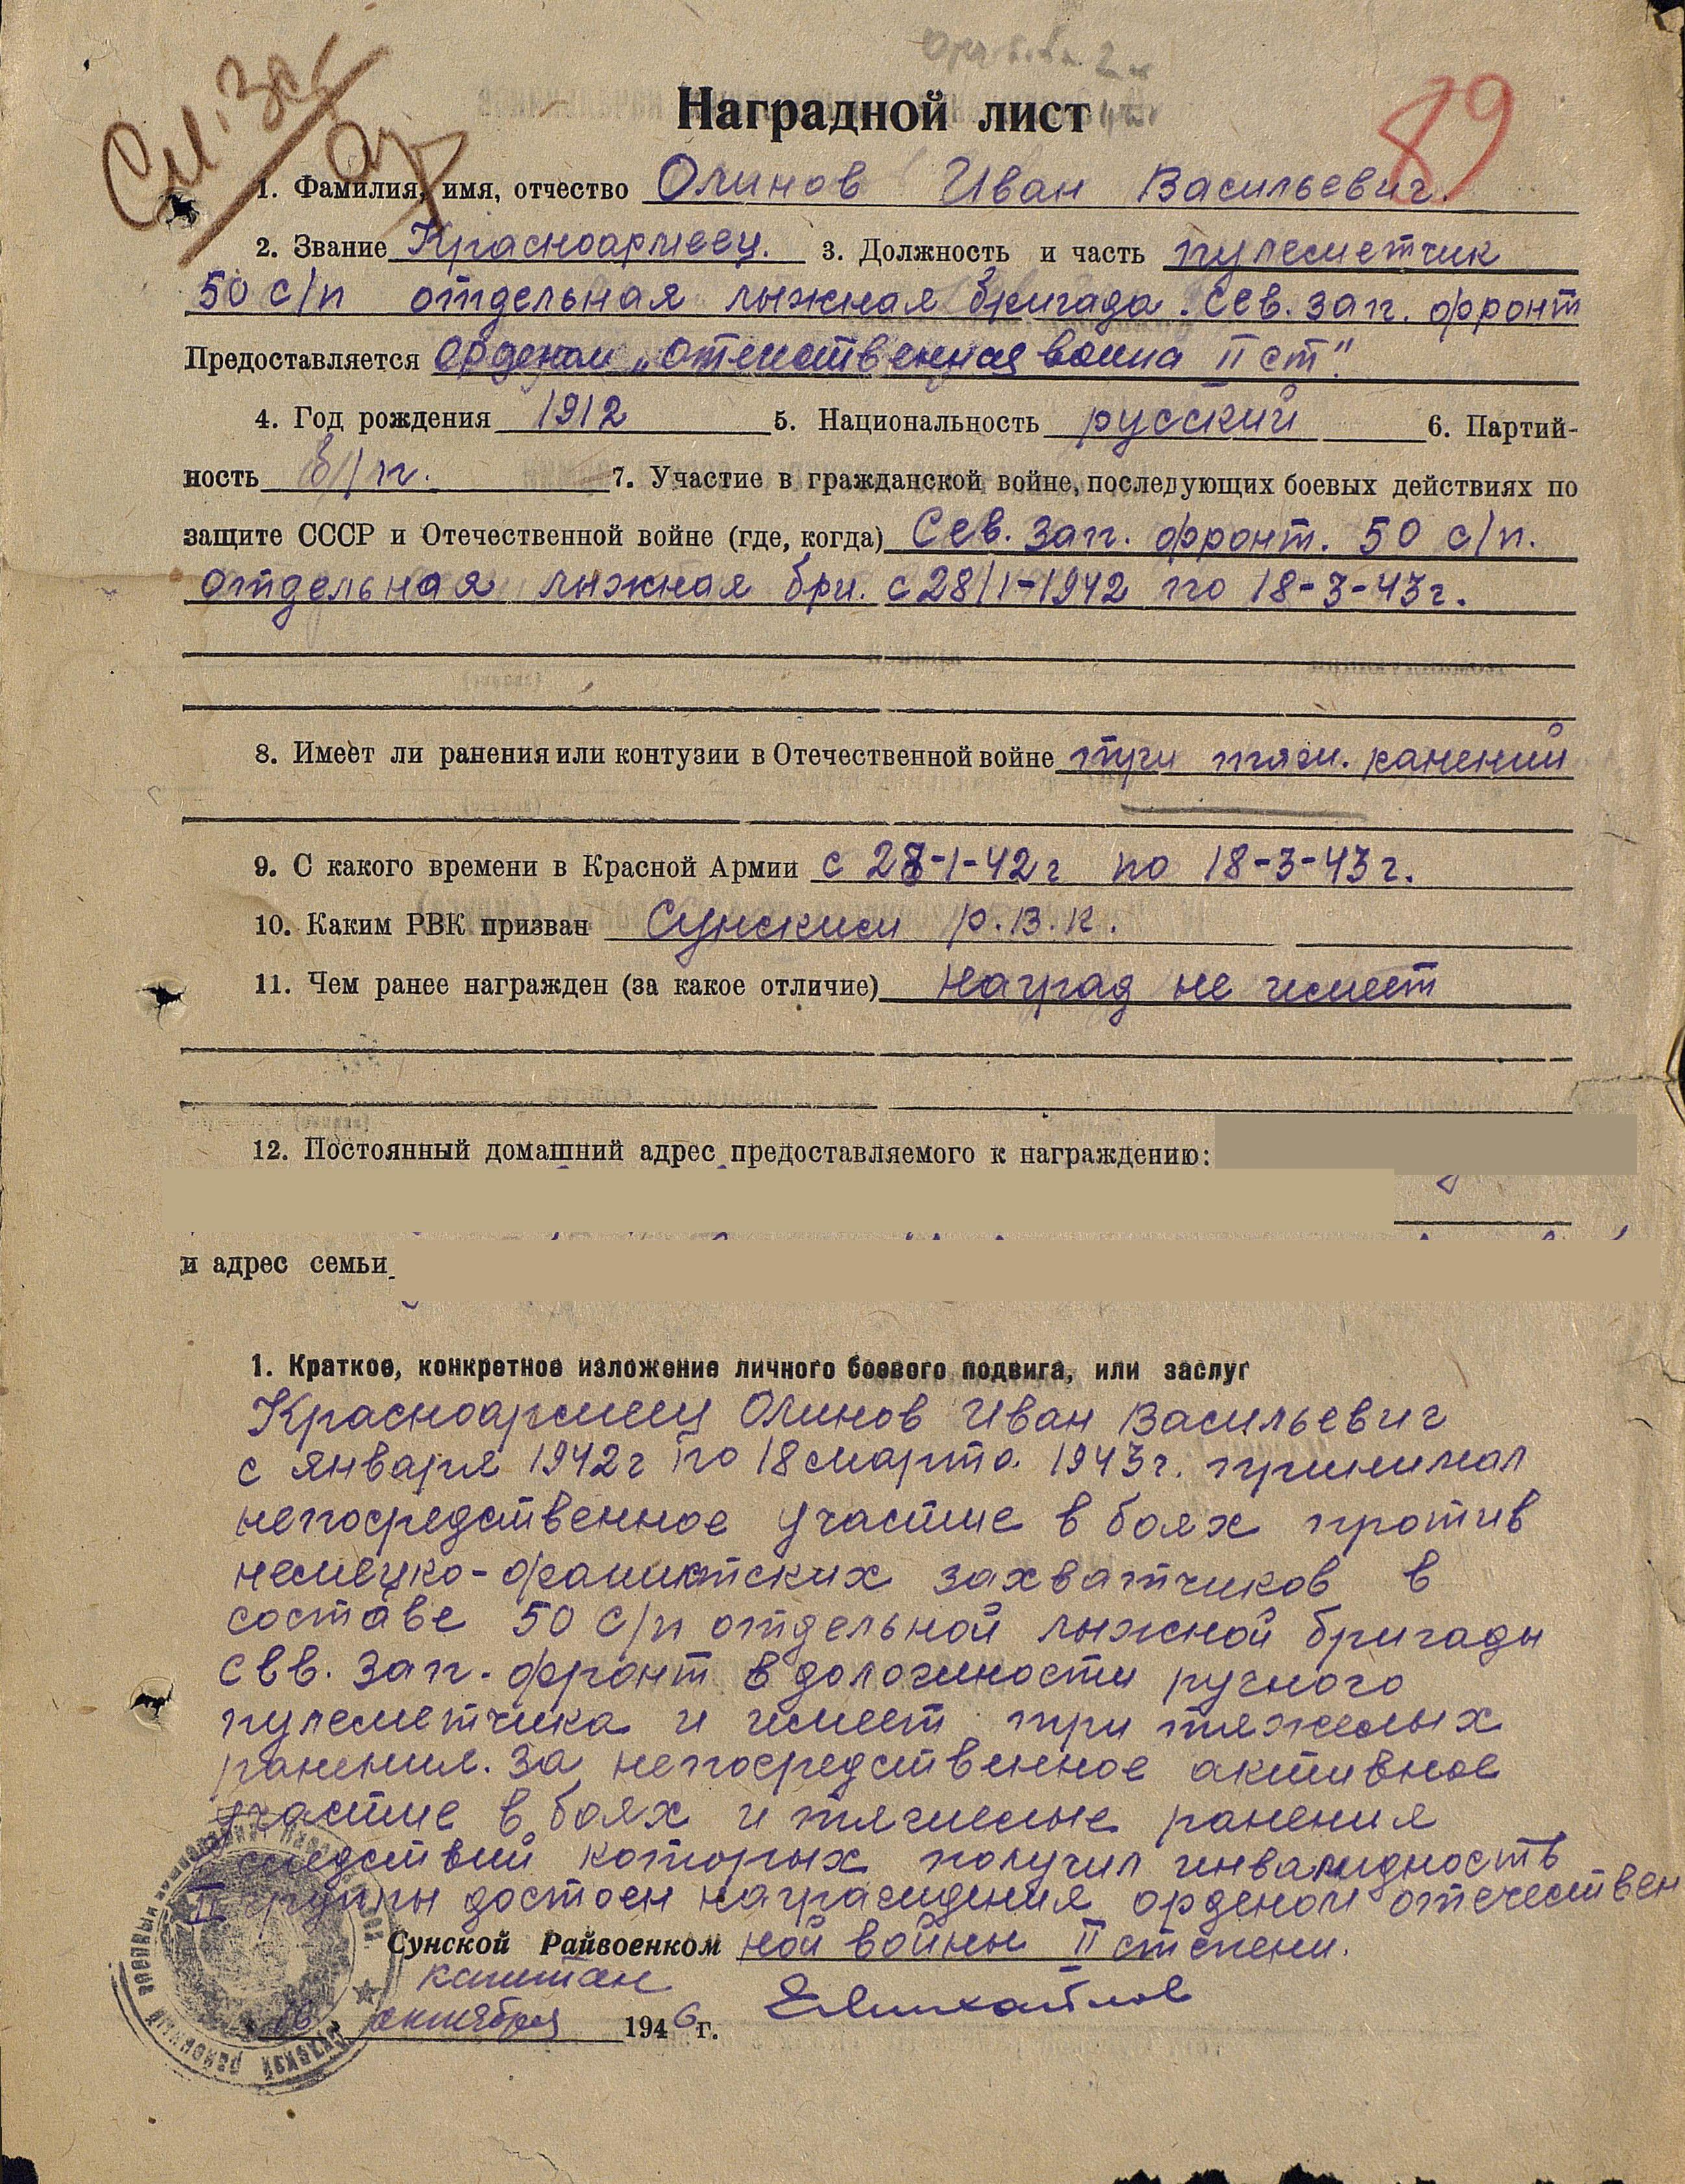 См.
89
Наградной лист
1. Фамилия, имя, отчество Олинов Иван Васильевич.
2. Звание Красноармеец. 3. Должность и часть пулеметчик
50 с/п отдельная лыжная бригада. Сев. зап. фронт
Предоставляется орденом „Отечественная война II ст."
4. Год рождения 1912 5. Национальность русский 6. Партий-
ность б/п. 7. Участие в гражданской войне, последующих боевых действиях по
защите СССР и Отечественной войне (где, когда) Сев. зап. фронт. 50 с/п.
отдельная лыжная бри. с 28/1-1942 по 18-3-43г.
8. Имеет ли ранения или контузии в Отечественной войне три тяж. ранений
9. С какого времени в Красной Армии с 28-1-42г по 18-3-43г.
10. Каким РВК призван Сунским р.в.к.
11. Чем ранее награжден (за какое отличие) наград не имеет
12. Постоянный домашний адрес предоставляемого к награждению:
и адрес семьи
1. Краткое, конкретное изложение личного боевого подвига, или заслуг
Красноармеец Олинов Иван Васильевич
с января 1942г по 18 марта 1943г. принимал
непосредственное участие в боях против
немецко-фашистских захватчиков в
составе 50 с/п отдельной лыжной бригады
Сев. зап. фронт в должности ручного
пулеметчика и имеет три тяжелых
ранения. За непосредственное активное
участие в боях и тяжелые ранения
следствий которых получил инвалидность
II группы достоен награждения орденом отечествен
Сунской Райвоенком ной войны II степени.
капитан
16 октября 1946 г. ЕМихайлов